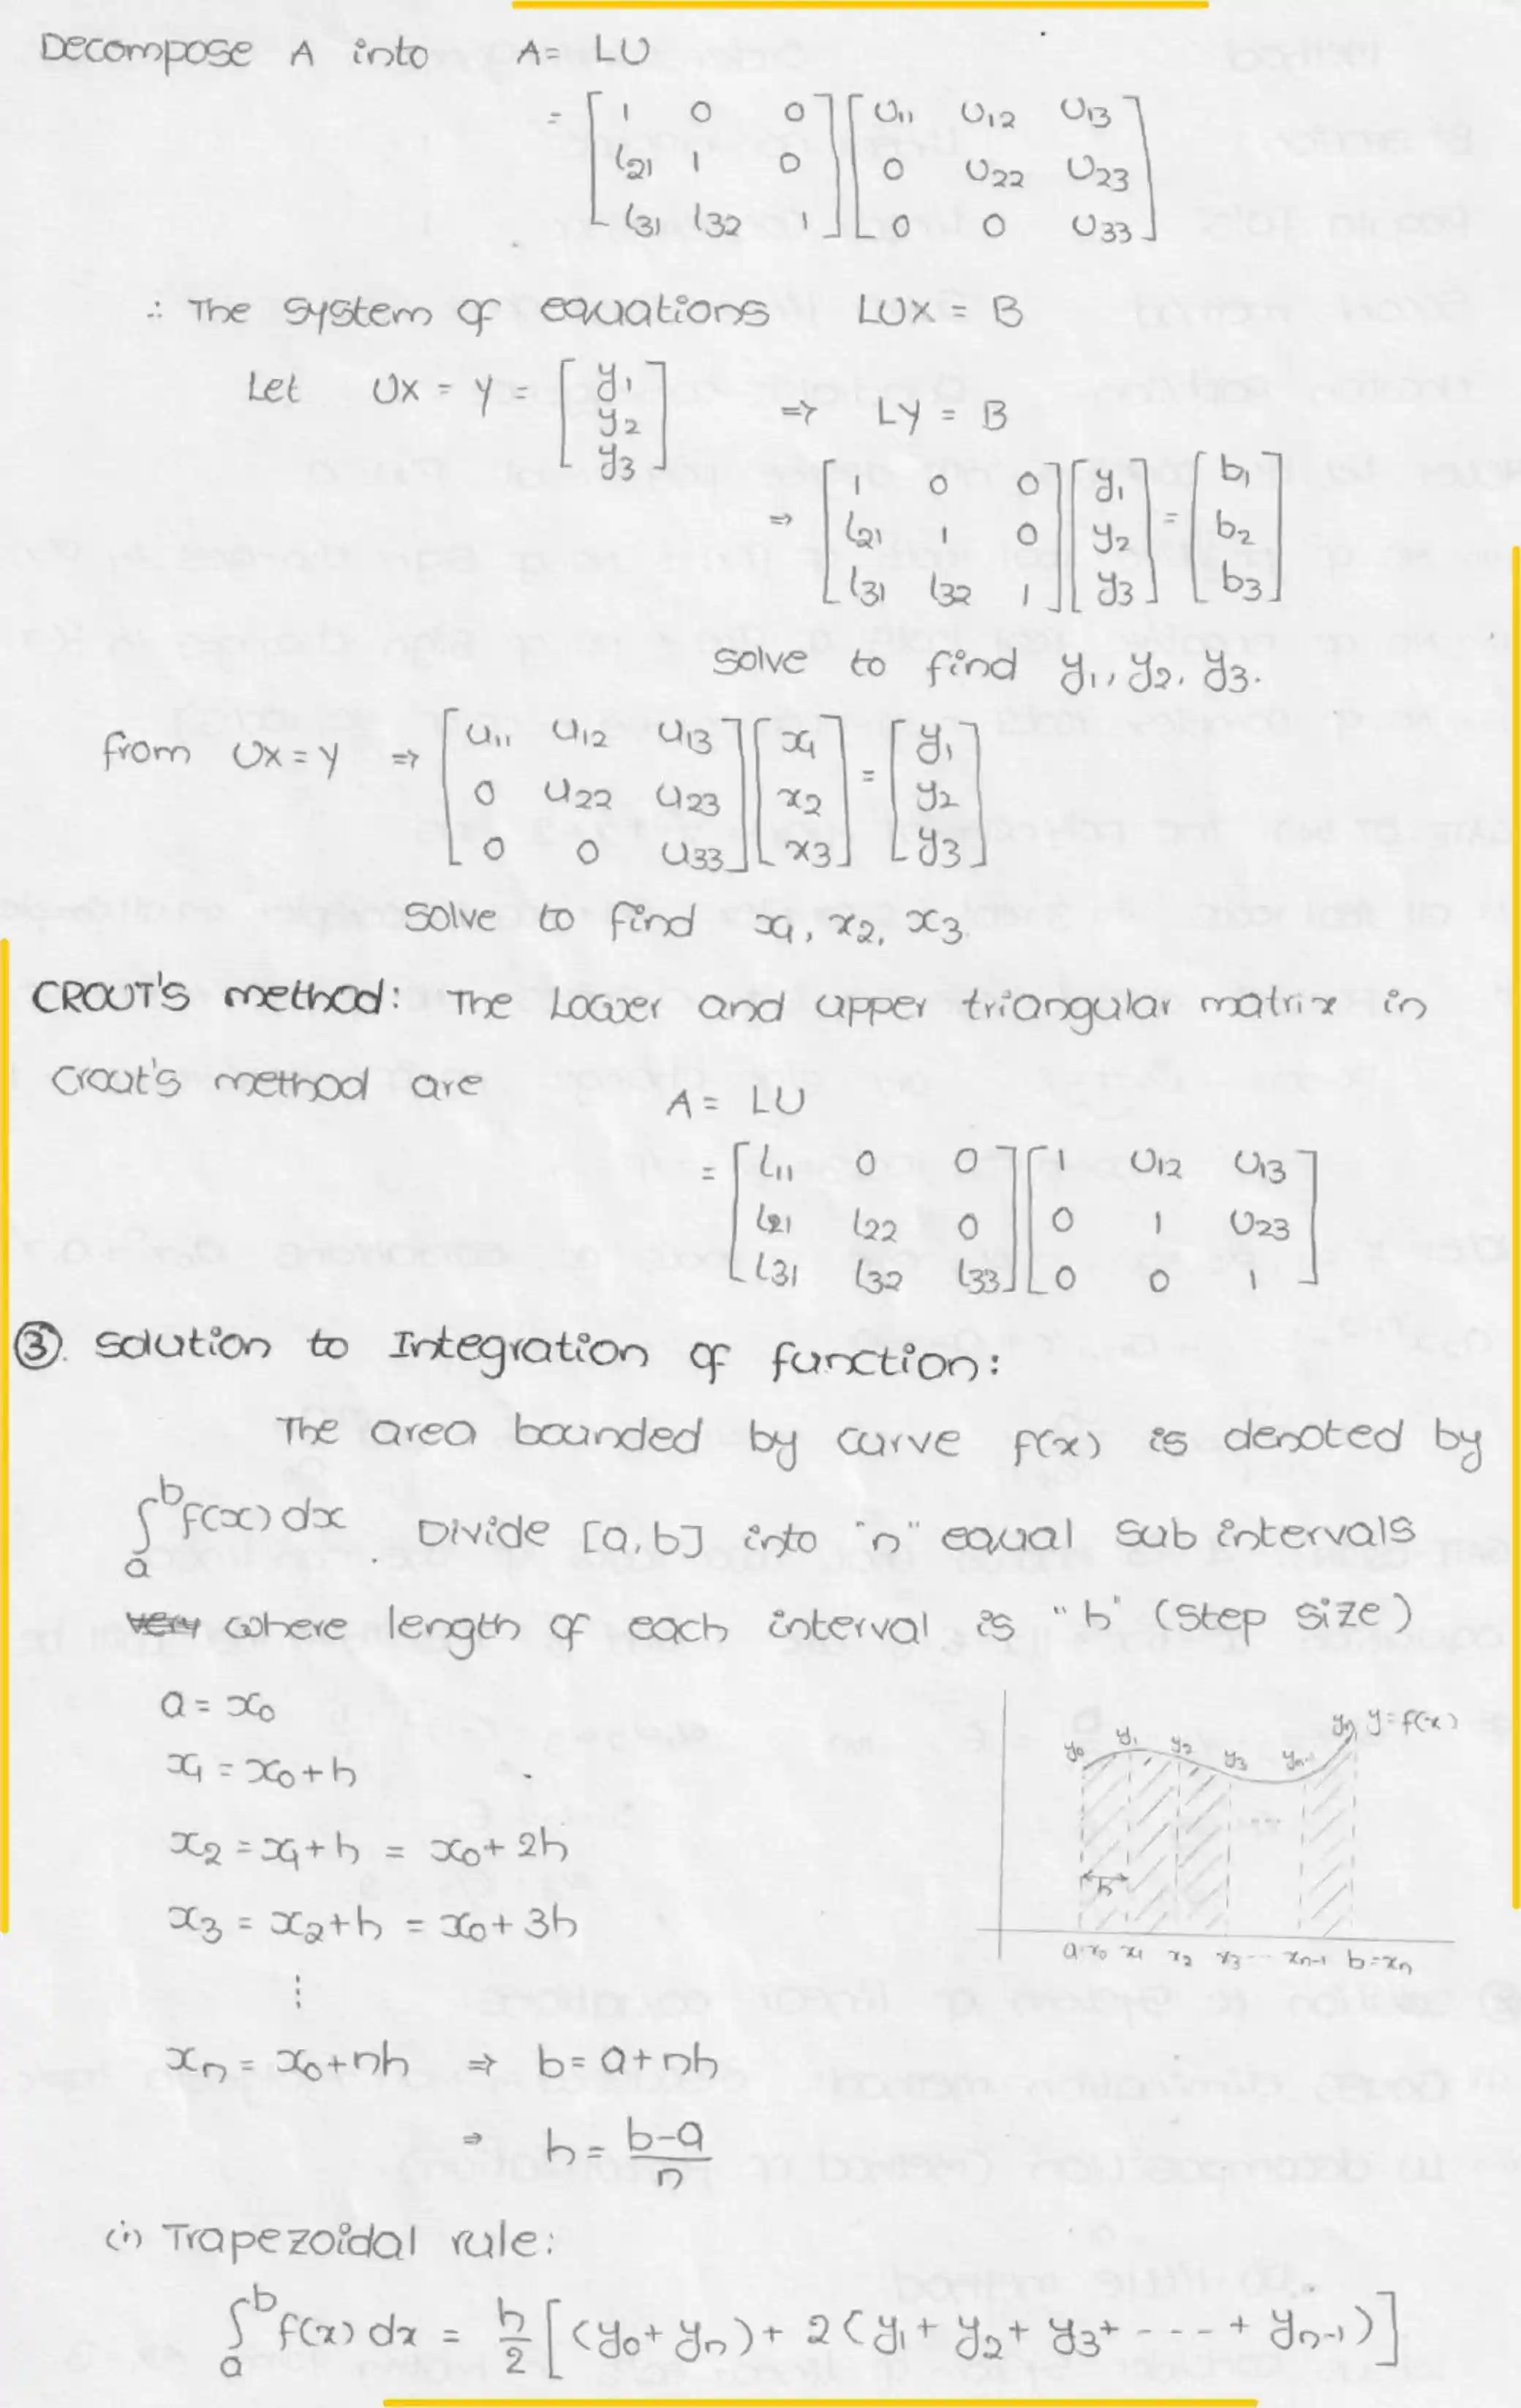 Decompose A into A = LU
= [ 1 0 0 ] [ U11 U12 U13 ]
[ l21 1 0 ] [ 0 U22 U23 ]
[ l31 l32 1 ] [ 0 0 U33 ]
∴ The system of equations LUX = B
Let UX = Y = [ y1 y2 y3 ] ⇒ LY = B
⇒ [ 1 0 0 ] [ y1 ] = [ b1 ]
[ l21 1 0 ] [ y2 ] [ b2 ]
[ l31 l32 1 ] [ y3 ] [ b3 ]
solve to find y1, y2, y3.
from UX = Y ⇒ [ U11 U12 U13 ] [ x1 ] = [ y1 ]
[ 0 U22 U23 ] [ x2 ] [ y2 ]
[ 0 0 U33 ] [ x3 ] [ y3 ]
solve to find x1, x2, x3
CROUT'S method: The Lower and upper triangular matrix in
Crout's method are
A = LU
= [ l11 0 0 ] [ 1 U12 U13 ]
[ l21 l22 0 ] [ 0 1 U23 ]
[ l31 l32 l33 ] [ 0 0 1 ]
③. Solution to Integration of function:
The area bounded by curve f(x) is denoted by
∫_a^b f(x) dx . Divide [a, b] into "n" equal sub intervals
very where length of each interval is "h" (step size)
a = x0
x1 = x0 + h
x2 = x1 + h = x0 + 2h
x3 = x2 + h = x0 + 3h
⋮
y0 y1 y2 y3 yn-1 yn y = f(x)
...
h
a=x0 x1 x2 x3 ... xn-1 b=xn
xn = x0 + nh ⇒ b = a + nh
⇒ h = (b-a)/n
(i) Trapezoidal rule:
∫_a^b f(x) dx = h/2 [ (y0 + yn) + 2 (y1 + y2 + y3 + - - - - + yn-1) ]